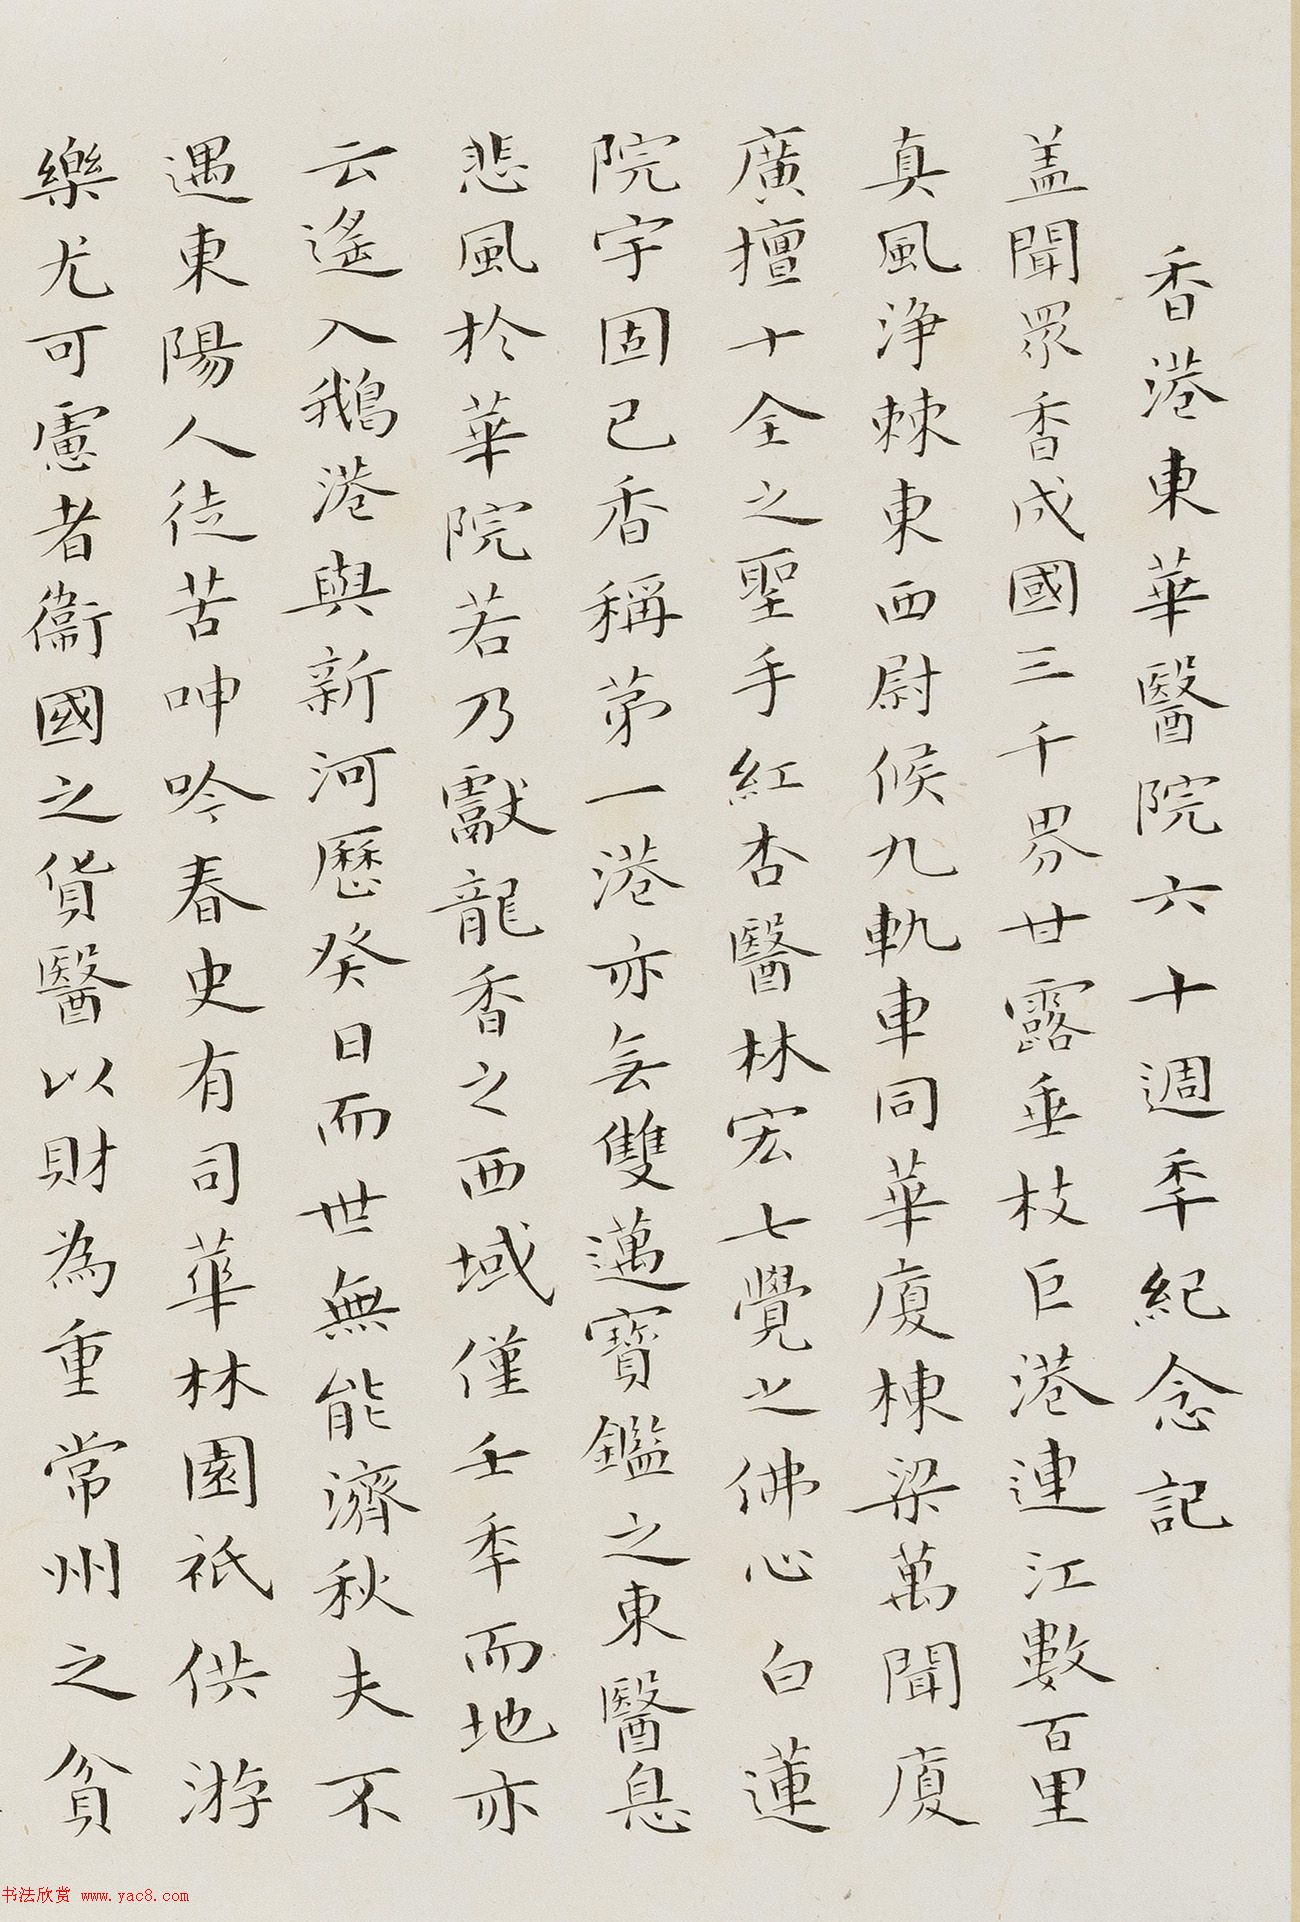 香港東華醫院六十週季紀念記
盖聞眾香成國三千界甘露垂枝巨港連江數百里
真風淨棘東西尉候九軌車同華廈棟梁萬間廈
廣擅十全之聖手紅杏醫林宏七覺之佛心白蓮
院宇固已香稱第一港亦無雙邁寶鑑之東醫息
悲風於華院若乃獻龍香之西域僅壬季而地亦
云遙入鵝港與新河歷癸日而世無能濟秋夫不
遇東陽人徒苦呻吟春史有司華林園祇供游
樂尤可慮者衞國之貨醫以財為重常州之貧
书法欣赏 www.yac8.com